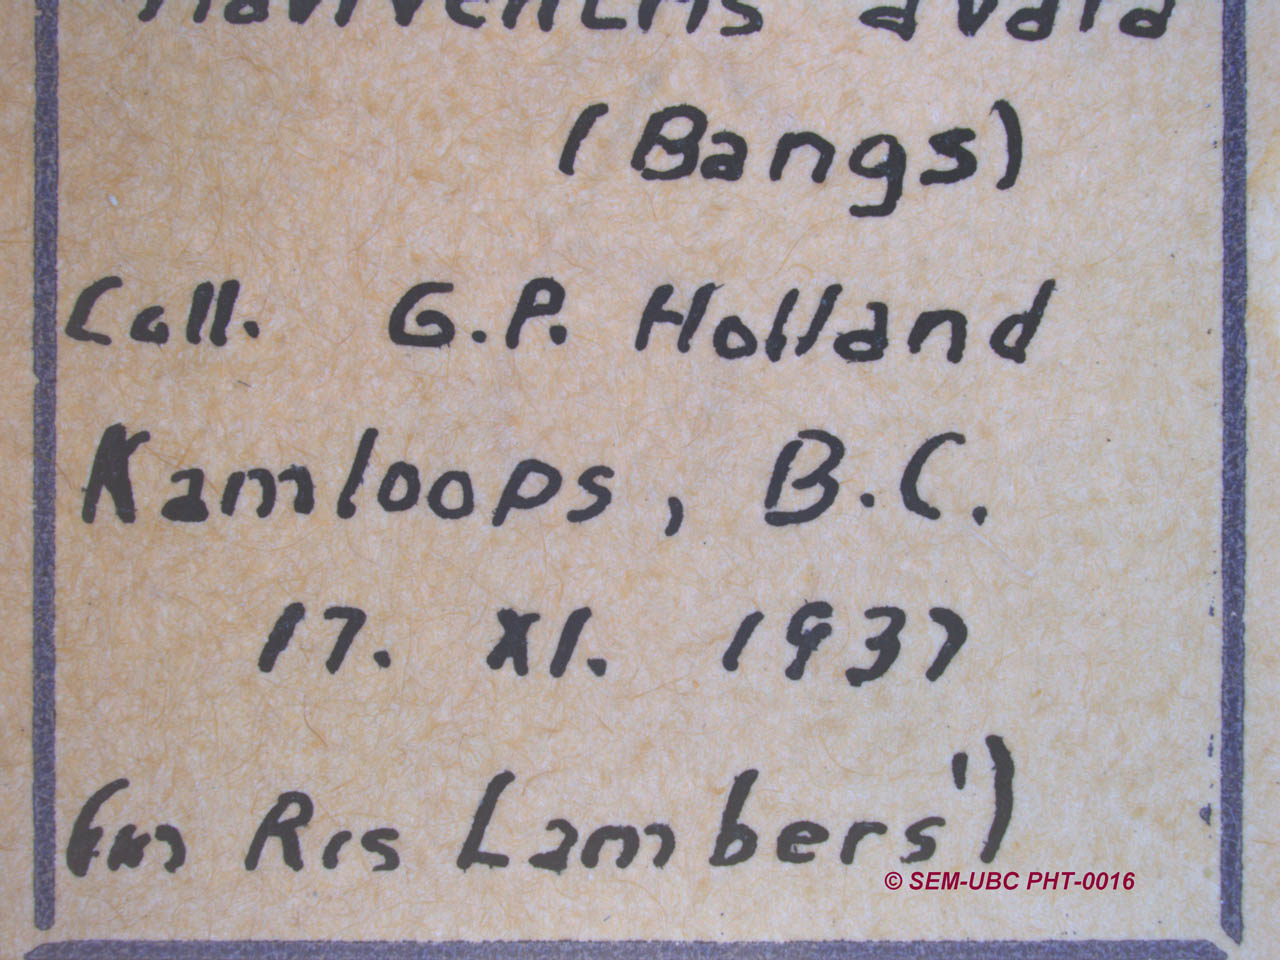 flaviventris avara
(Bangs)
Coll. G.P. Holland
Kamloops, B.C.
17. XI. 1937
Ris Lambers')
© SEM-UBC PHT-0016